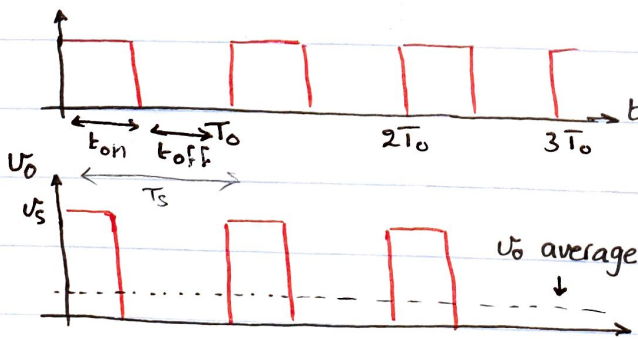 t
ton toff To 2To 3To
vo
Ts
vs
vo average